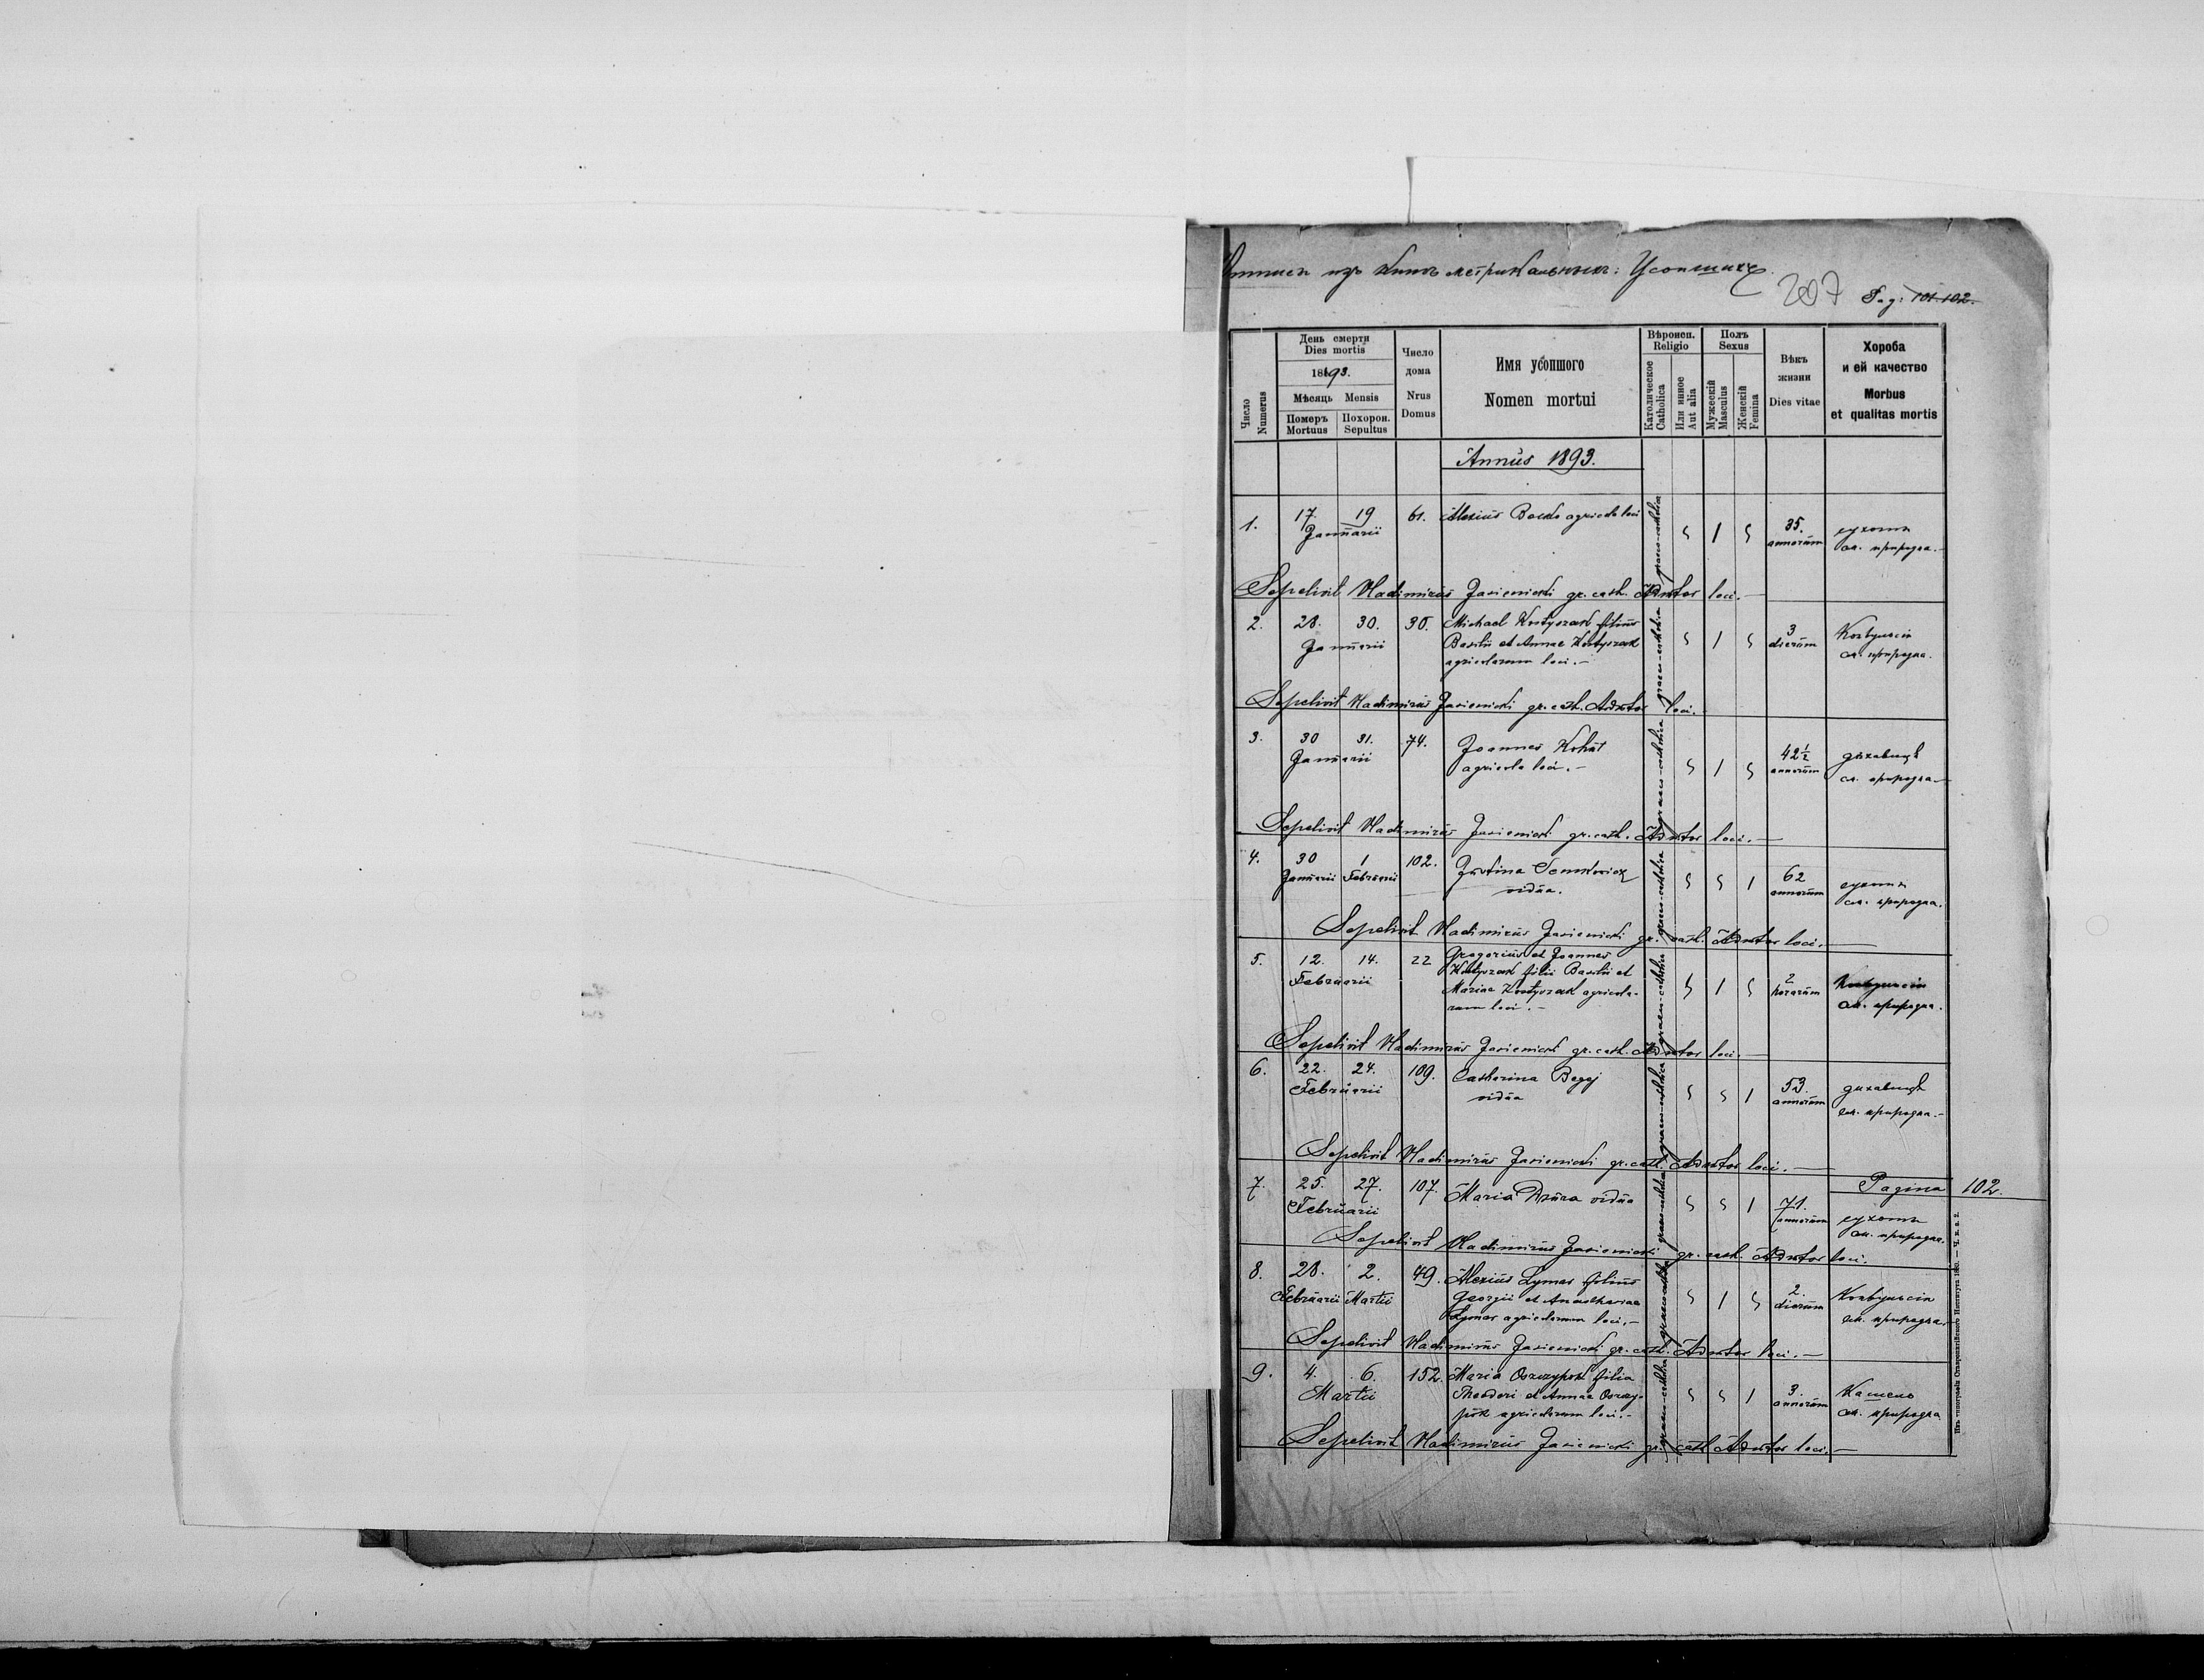 изъ книгъ метрикальныхъ: Усопшихъ.
207 Pag: 101. 102.
Число Numerus
День смерти
Dies mortis
1893.
Мѣсяць Mensis
Померъ Mortuus
Похорон. Sepultus
Число дома
Nrus Domus
Имя усопшого
Nomen mortui
Вѣроисп. Religio
Католическое Catholica
Или инное Aut alia
Полъ Sexus
Мужескій Masculus
Женскій Femina
Вѣкъ жизни
Dies vitae
Хороба и ей качество
Morbus et qualitas mortis
Annus 1893.
1. 17. 19 61. Alexius agricola loci 1 35.
Januarii graeco-catholica annorum сухоты
см. природна.-
Sepelivit Vladimirus Jasienicki gr. cath. Admtor loci.-
2. 28. 30. 30. Michael Kostyszak filius 1 3
Januarii Basilii et Annae Kostyszak graeco-catholica dierum
agricolarum loci.- см. природна.
Sepelivit Vladimirus Jasienicki gr. cath. Admtor loci.
3. 30 31. 74. Joannes Kohut 1 42½
Januarii agricola loci.- graeco-catholica annorum дыхавица
см. природна-
Sepelivit Vladimirus Jasienicki gr. cath. Admtor loci.-
4. 30 1 102. Justina 1 62
Januarii Februarii vidua. graeco-catholica annorum сухоты
см. природна.
Sepelivit Vladimirus Jasienicki gr. cath. Admtor loci.-
5. 12. 14. 22 Gregorius et Joannes
Februarii Kostyszak filii Basilii et 1 2
Mariae Kostyszak agricola- graeco-catholica horarum
rum loci.- см. природна.
Sepelivit Vladimirus Jasienicki gr. cath. Admtor loci.-
6. 22. 24. 109. Catharina Begej 1 53.
Februarii vidua graeco-catholica annorum дихавица
см. природна.-
Sepelivit Vladimirus Jasienicki gr. cath. Admtor loci.-
Pagina 102.
7. 25. 27. 107. Maria vidua 1 71.
Februarii graeco-catholica annorum сухоты
см. природна.
Sepelivit Vladimirus Jasienicki gr. cath. Admtor loci.
8. 28. 2. 49. Alexius Lymar filius 1 2.
Februarii Martii Georgii et graeco-catholica dierum
Lymar agricolarum loci.- см. природна.
Sepelivit Vladimirus Jasienicki gr. cath. Admtor loci.-
9. 4. 6. 152. Maria filia 1 3.
Martii Theodori et Annae graeco-catholica annorum Кашель
agricolarum loci.- см. природна
Sepelivit Vladimirus Jasienicki gr. cath Admtor loci.-
Изъ типографіи Ставропигійского Института